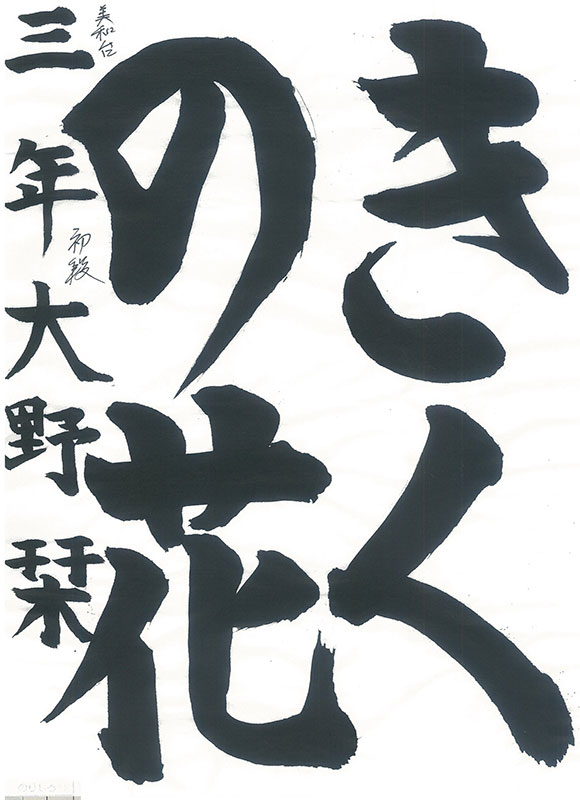 きく
の花
三年大野栞
美和台
初段